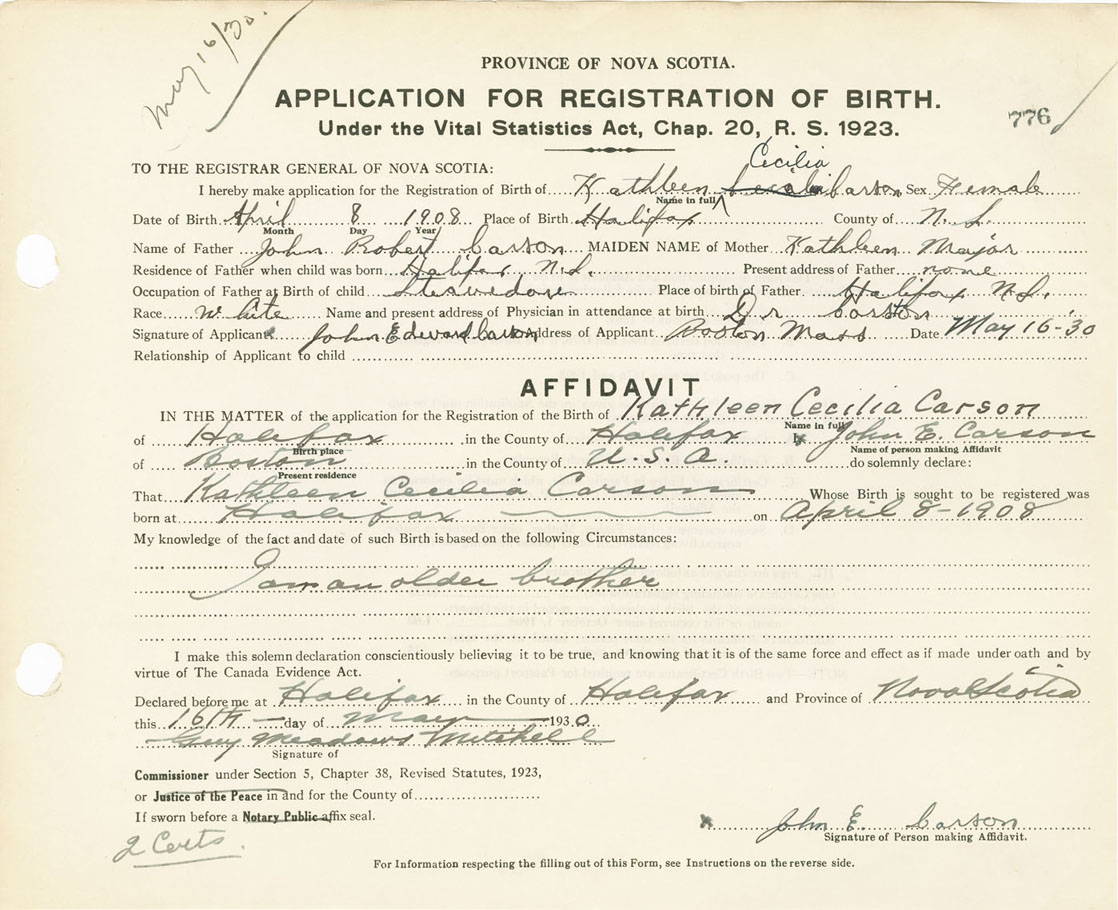 May 16/30.
PROVINCE OF NOVA SCOTIA.
APPLICATION FOR REGISTRATION OF BIRTH.
776
Under the Vital Statistics Act, Chap. 20, R. S. 1923.
TO THE REGISTRAR GENERAL OF NOVA SCOTIA:
Cecilia
I hereby make application for the Registration of Birth of Kathleen Carson Sex Female
Name in full
Date of Birth April 8 1908 Place of Birth Halifax County of N. S.
Month Day Year
Name of Father John Robert Carson MAIDEN NAME of Mother Kathleen Major
Residence of Father when child was born Halifax N.S. Present address of Father none
Occupation of Father at Birth of child Stevedore Place of birth of Father Halifax N.S.
Race White Name and present address of Physician in attendance at birth Dr Carston
Signature of Applicant John Edward Carson Address of Applicant Boston Mass Date May 16-'30
Relationship of Applicant to child
AFFIDAVIT
IN THE MATTER of the application for the Registration of the Birth of Kathleen Cecilia Carson
Name in full
of Halifax in the County of Halifax I, John E. Carson
Birth place Name of person making Affidavit
of Boston in the County of U.S.A. do solemnly declare:
Present residence
That Kathleen Cecilia Carson Whose Birth is sought to be registered was
born at Halifax on April 8-1908
My knowledge of the fact and date of such Birth is based on the following Circumstances:
I am an older brother
I make this solemn declaration conscientiously believing it to be true, and knowing that it is of the same force and effect as if made under oath and by
virtue of The Canada Evidence Act.
Declared before me at Halifax in the County of Halifax and Province of Nova Scotia
this 16th day of May 1930
Guy Meadows Mitchell
Signature of
Commissioner under Section 5, Chapter 38, Revised Statutes, 1923,
or Justice of the Peace in and for the County of
If sworn before a Notary Public affix seal.
x John E. Carson
Signature of Person making Affidavit.
2 Certs.
For Information respecting the filling out of this Form, see Instructions on the reverse side.